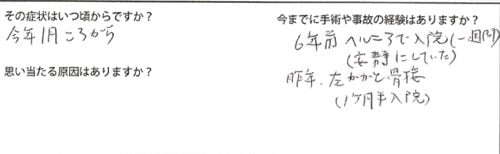 その症状はいつ頃からですか？
今年1月ころから
思い当たる原因はありますか？
今までに手術や事故の経験はありますか？
6年前 ヘルニアで入院(一週間)
(安静にしていた)
昨年、左かかと骨接
(1ヶ月半入院)